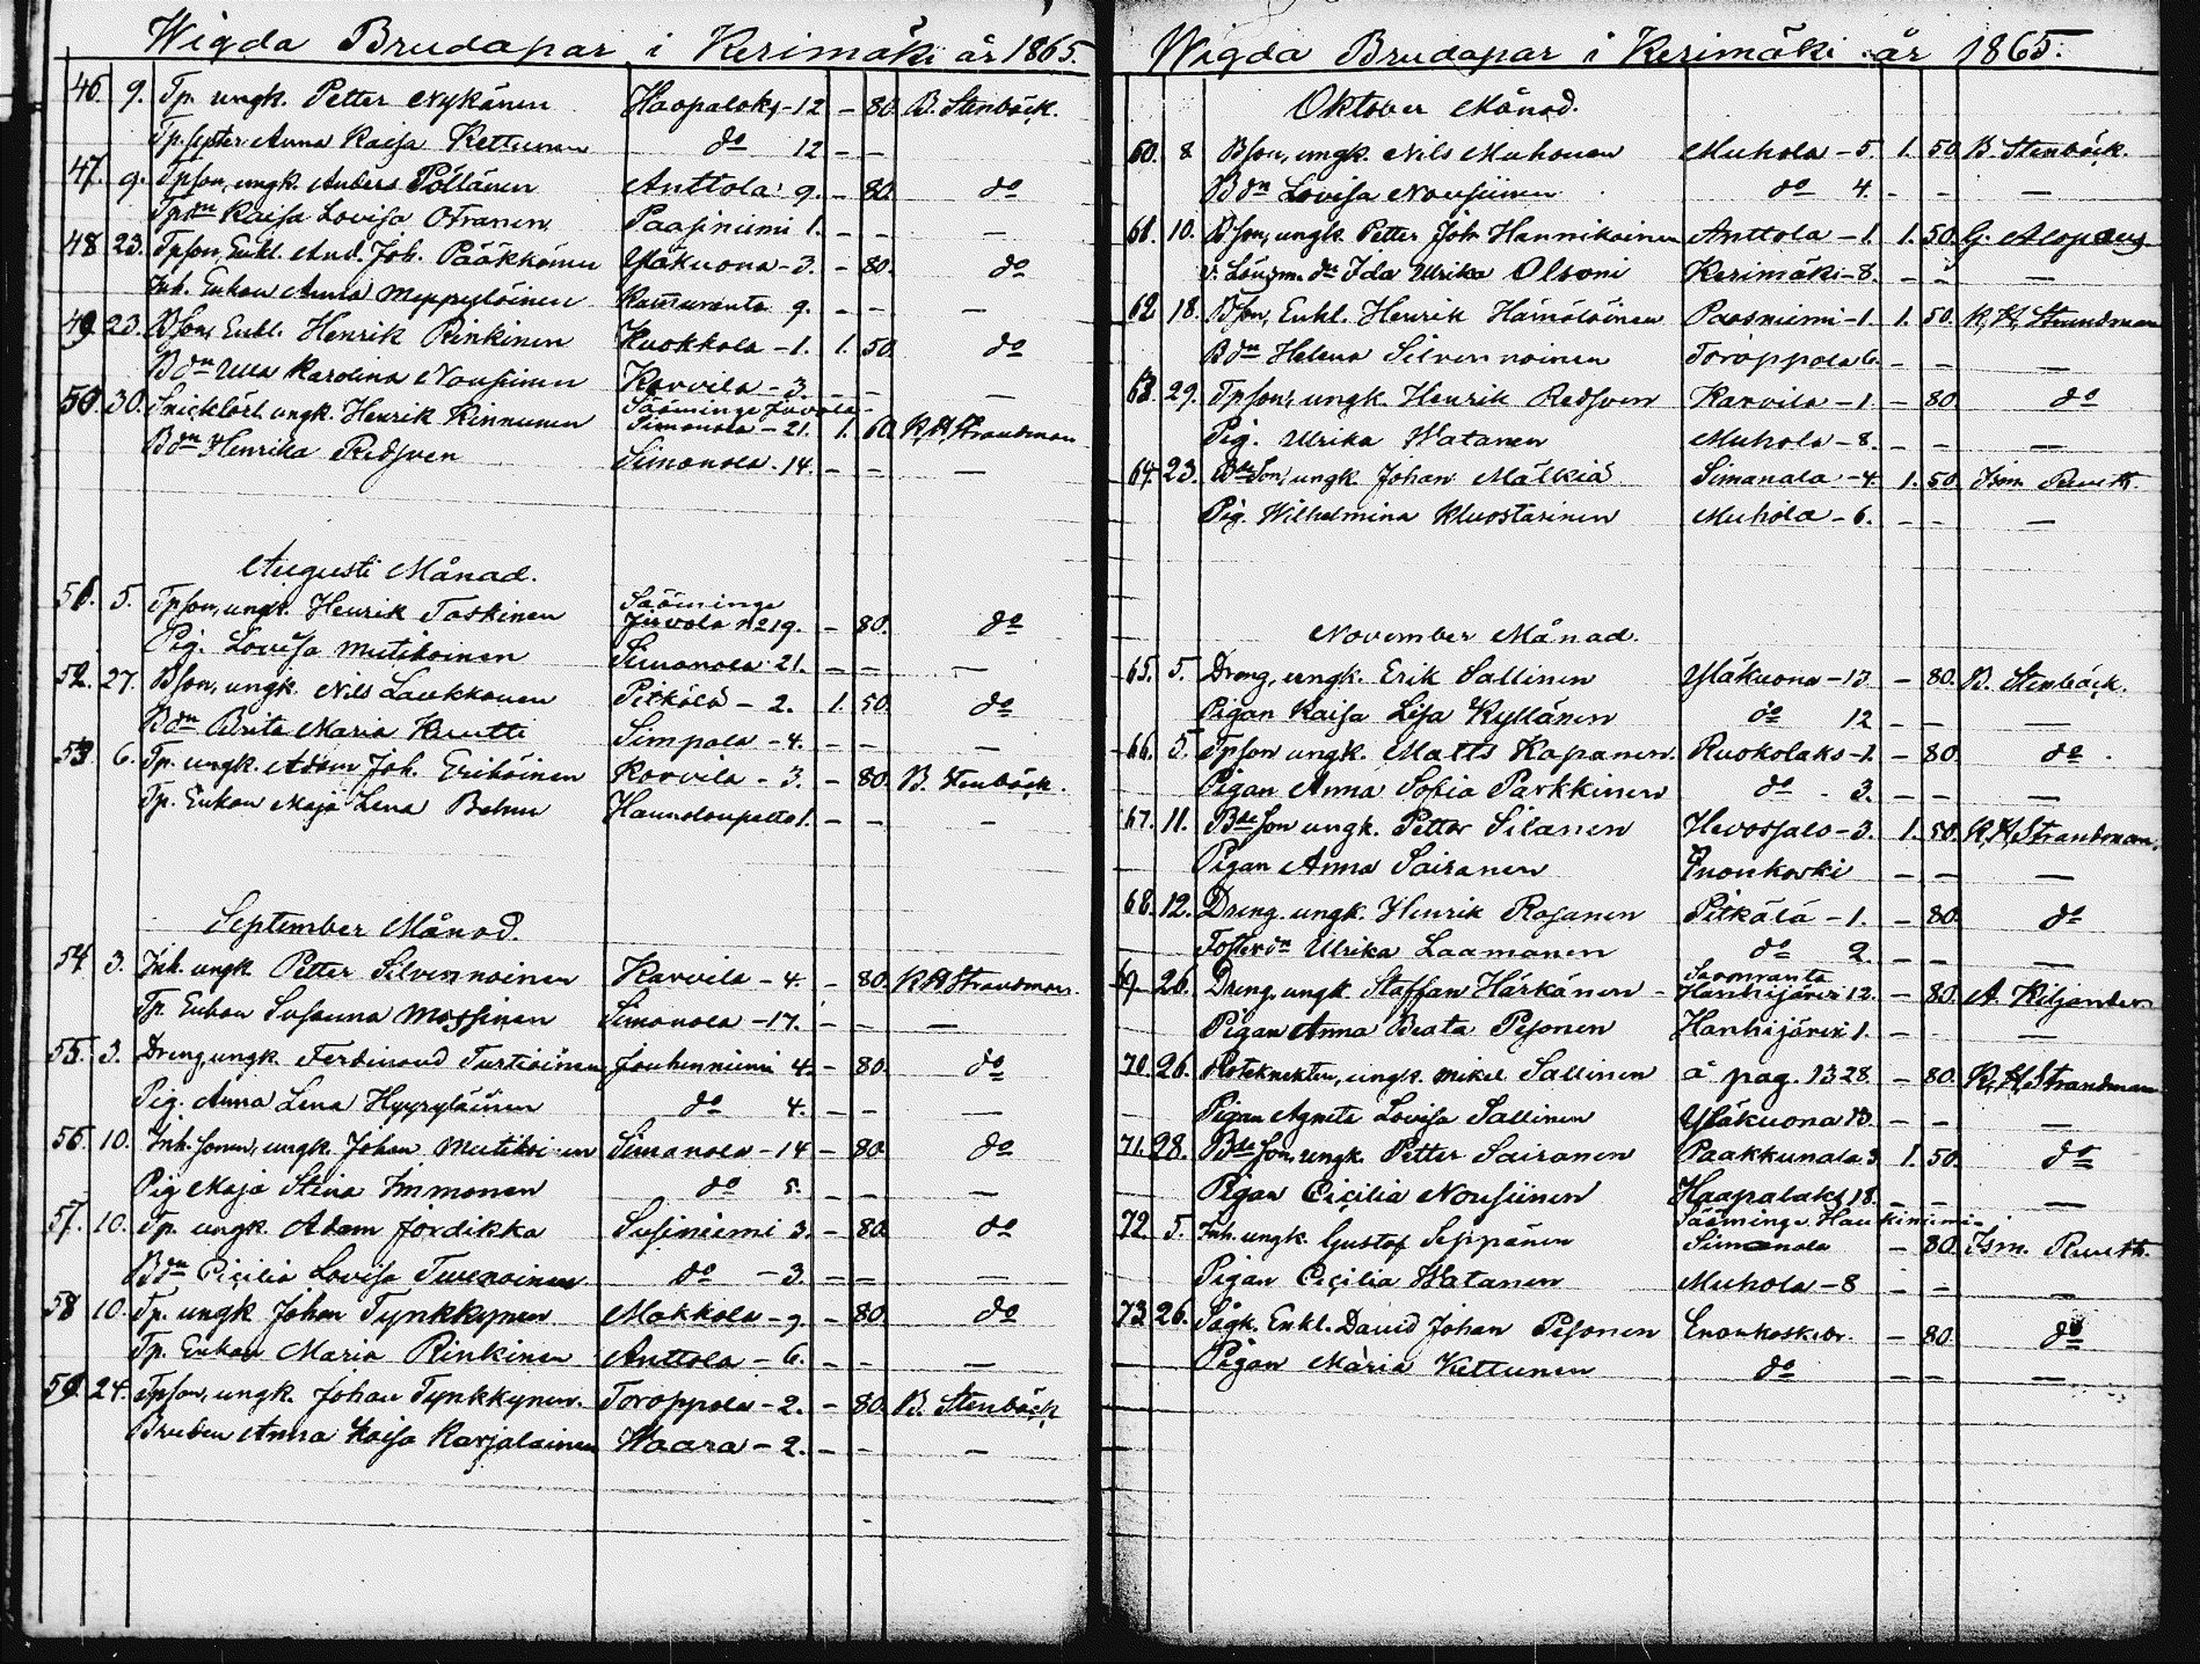 Wigda Brudapar i Kerimäki år 1865.
46. 9. Tp. ungk. Petter Nykänen Haapalaks - 12 - 80. B. Stenbäck.
Tp. syster Anna Kaisa Kettunen do 12 - -
47. 9. Tpson, ungk. Anders Pöllänen Anttola 9. - 80. do
Tpdn Kaisa Lovisa Otranen Paasniemi 1. - - -
48. 23. Tpson, Enkl. And. Joh. Pääkkönen Yläkuona - 3. - 80. do
Inh. Enkan Anna Meppyläinen 9. - - -
49. 23. Bson, Enkl. Henrik Rinkinen Kuokkala - 1. 1. 50. do
Bdn Ulla Karolina Nousiinen Karvila - 3. - - -
50. 30. Snicklärl. ungk. Henrik Kinnunen Sääminge Juvola - Simanala - 21. 1. 60. K. H. Strandman
Bdn Henrika Redsven Simanala - 14. - - -
Augusti Månad.
51. 5. Tpson, ungk. Henrik Taskinen Sääminge Juvola No 19. - 80. do
Pig. Lovisa Mutikainen Simanala 21. - - -
52. 27. Bson, ungk. Nils Laukkanen Pitkälä - 2. 1. 50. do
Bdn Brita Maria Kuutti Simpala - 4. - - -
53. 6. Tp. ungk. Adam Joh. Eriköinen Karvila - 3. - 80. B. Stenbäck.
Tp. Enkan Maja Lena Behm 1. - - -
September Månad.
54. 3. Inh. ungk. Petter Silvennoinen Karvila - 4. - 80. K. H. Strandman.
Tp. Enkan Susanna Mossinen Simanala - 17. - - -
55. 3. Dreng, ungk. Ferdinand Turtiainen Jouhenniemi 4. - 80. do
Pig. Anna Lena Hyyryläinen do 4. - - -
56. 10. Inh. sonen, ungk. Johan Mutikainen Simanala - 14 - 80. do
Pig. Maja Stina Immonen do 5. - - -
57. 10. Tp. ungk. Adam Jördikka Susiniemi 3. - 80. do
Bdn Cicilia Lovisa Turunoinen do - 3. - - -
58. 10. Tp. ungk. Johan Tynkkynen Makkola - 9. - 80. do
Tp. Enkan Maria Rinkinen Anttola - 6. - - -
59. 24. Tpson, ungk. Johan Tynkkynen. Toroppala - 2. - 80. B. Stenbäck
Bruden Anna Kaisa Karjalainen Waara - 2. - - -
Wigda Brudapar i Kerimäki år 1865.
Oktober Månad.
60. 8 Bson, ungk. Nils Muhonen Muhola - 5. 1. 50. B. Stenbäck.
Bdn Lovisa Nousiinen do 4. - - -
61. 10. Bson, ungk. Petter Joh. Hannikainen Anttola - 1. 1. 50. G. Alopæus
v. Länsm. dn Ida Ulrika Olsoni Kerimäki - 8. - - -
62. 18. Bson, Enkl. Henrik Hämäläinen Paasniemi - 1. 1. 50. K. H. Strandman
Bdn Helena Silvennoinen Toroppala 6. - - -
63. 29. Tpson, ungk. Henrik Redsven Karvila - 1. - 80. do
Pig. Ulrika Watanen Muhola - 8. - - -
64. 23. Bdeson, ungk. Johan Mälkiä Simanala - 4. 1. 50.
Pig. Wilhelmina Kluostarinen Muhola - 6. - - -
November Månad.
65. 5. Dreng, ungk. Erik Sallinen Yläkuona - 13 - 80. B. Stenbäck.
Pigan Kaisa Lisa Kyllänen do 12 - - -
66. 5. Tpson ungk. Matts Kapanen. Ruokolaks - 1. - 80. do
Pigan Anna Sofia Parkkinen do - 3. - - -
67. 11. Bdeson ungk. Petter Silanen Hevossalo - 3. 1. 50. K. H. Strandman.
Pigan Anna Sairanen Enonkoski - - -
68. 12. Dreng. ungk. Henrik Rosanen Pitkälä - 1. - 80. do
Fosterdn Ulrika Laamanen do 2. - - -
69. 26. Dreng. ungk. Staffan Härkänen - Savonranta Hanhijärvi 12. - 80. A. Kiljander
Pigan Anna Beata Pesonen Hanhijärvi 1. - -
70. 26. Roteknekten, ungk. Mikel Sallinen å pag. 1328. - 80. K. H. Strandman
Pigan Agneta Lovisa Sallinen Yläkuona 13. - - -
71. 28. Bdeson, ungk. Petter Sairanen Paakkunala 3 1. 50. do
Pigan Cicilia Nousiinen Haapalaks 18. - - -
72. 5. Inh. ungk. Gustaf Seppänen Sääminge, Haukiniemi - Simanala - 80.
Pigan Cicilia Watanen Muhola - 8 - - -
73. 26. Sågk. Enkl. David Johan Pesonen Enonkoski br. - 80. do
Pigan Maria Kettunen do - - -